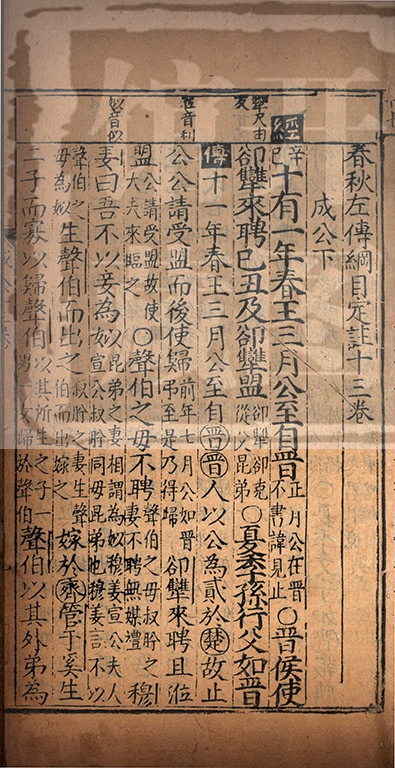 春秋左傳綱目定註十三卷
成公下
經 辛巳 十有一年春王三月公至自晉 正月公在晉不書諱見止 ○晉侯使
郤犨來聘己丑及郤犨盟 郤犨郤克從父昆弟 ○夏季孫行父如晉
傳 十一年春王三月公至自晉晉人以公為貳於楚故止
公公請受盟而後使歸 前年七月公如晉弔至是乃得歸 郤犨來聘且涖
盟 公請受盟故使大夫來臨之 ○聲伯之母不聘 聲伯之母叔肸之妻不聘無媒禮 穆
姜曰吾不以妾為姒 昆弟之妻相謂為姒穆姜宣公夫人宣公叔肸同母昆弟也穆姜言不以
聲伯之母為姒 生聲伯而出之 叔肸之妻生聲伯而出嫁之 嫁於齊管于奚生
二子而寡以歸聲伯 以其所生之子一男一女歸於聲伯 聲伯以其外弟為
犨尺由反
涖音利
姒音似